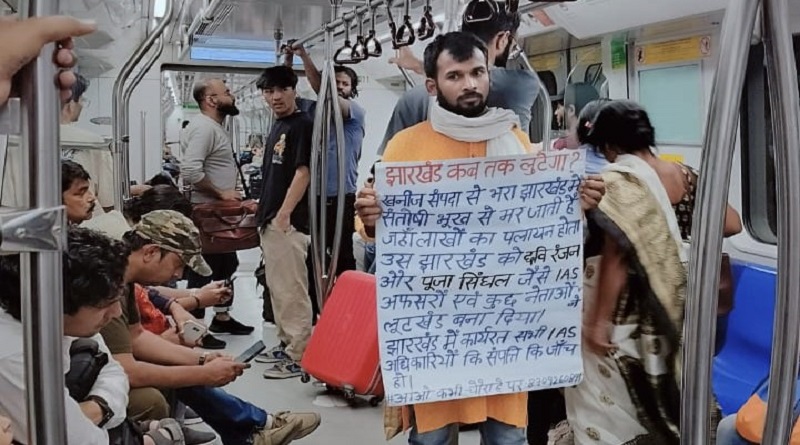 झारखंड कब तक लुटेगा?
खनीज संपदा से भरा झारखंड में
संतोषी भूख से मर जाती है
जहाँ लाखों का पलायन होता
उस झारखंड को छवि रंजन
और पूजा सिंघल जैसे IAS
अफसरों एवं कुछ नेताओं ने
लूटखंड बना दिया।
झारखंड में कार्यरत सभी IAS
अधिकारियों कि संपति कि जाँच
हो।
आओ कभी चौराहे पर